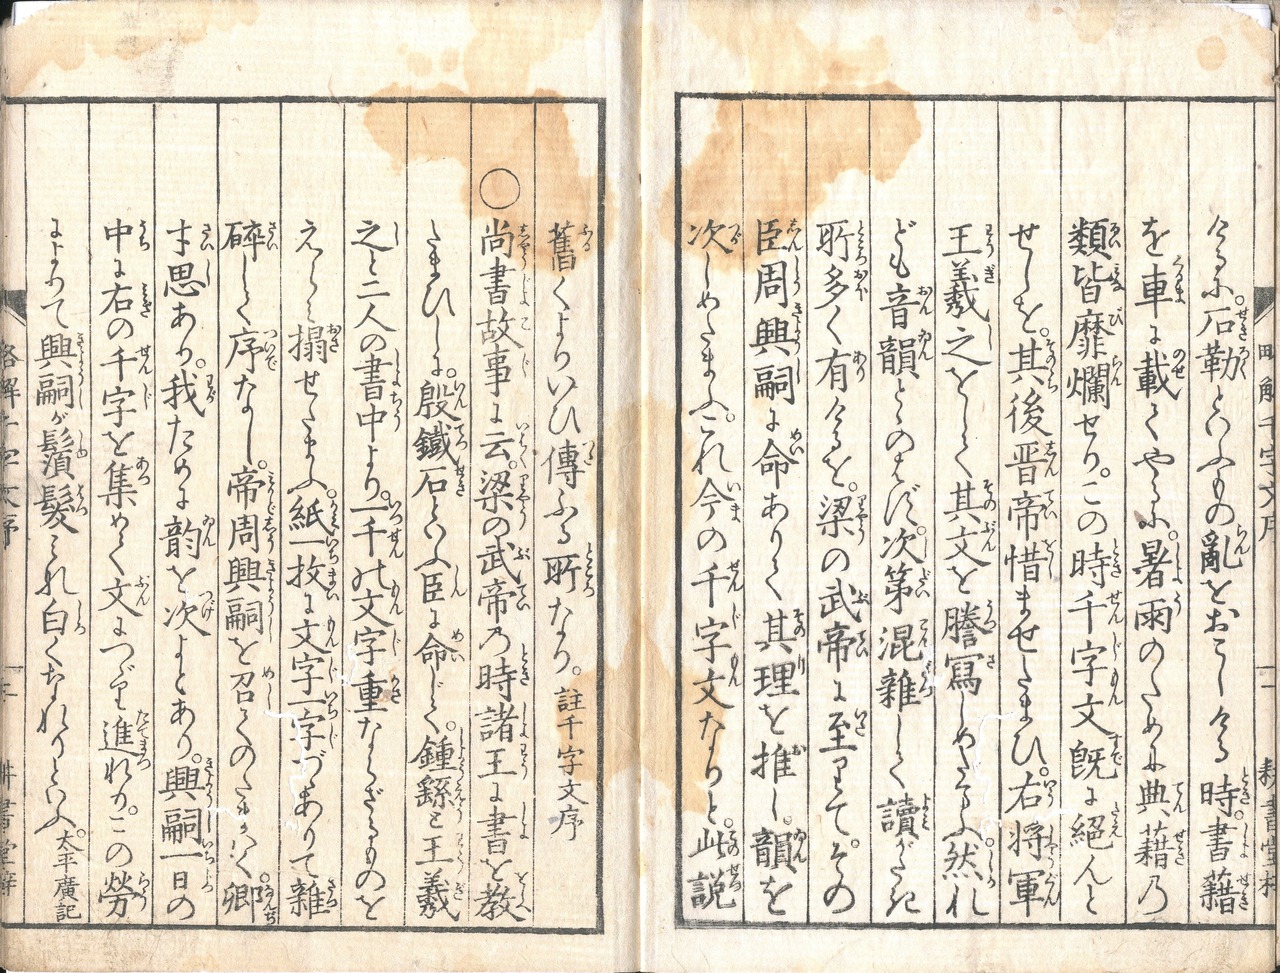 けるに。石勒といふもの亂をおこしける時。書籍
を車に載てやるに。暑雨のために典藉乃
類皆靡爛せり。この時千字文既に絕んと
せしを。其後晋帝惜ませたまひ。右将軍
王羲之をして其文を謄寫しめたまふ。然れ
ども音韻とゝのはず。次第混雑して讀がたき
所多く有けるを。梁の武帝に至りて。その
臣周興嗣に命ありて其理を推し。韻を
次しめたまふ。これ今の千字文なりと。此説
舊くよりいひ傳ふる所なり。註千字文序
○尚書故事に云。梁の武帝乃時諸王に書を教
たまひしに。殷鐵石といふ臣に命じて。鍾繇と王羲
之と二人の書中より。一千の文字重ならざるものを
えらみ搨せたまふ。紙一枚に文字一字づゝありて雑
碎して序なし。帝周興嗣を召てのたまはく。卿
才思あり。我ために韵を次よとあり。興嗣一日の
中に右の千字を集めて文につゞり進れり。この勞
によりて興嗣が鬚髮みれ白くなれりといふ。太平廣記
略解千字文序
一
耕書堂梓
略解千字文序
耕書堂梓